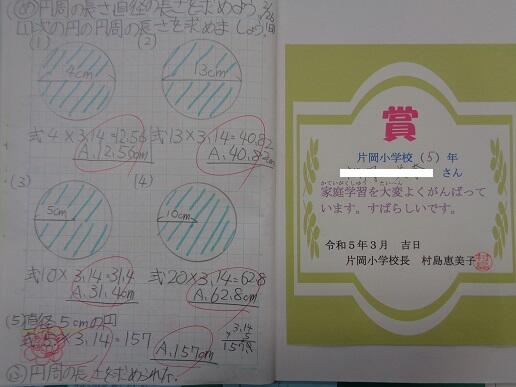 め 円周の長さ、直径の長さを求めよう。
1 次の円の円周の長さを求めましょう。
(1) (2)
4cm 13cm
式 4×3.14=12.56 式 13×3.14=40.82
A.12.56cm A.40.82cm
(3) (4)
5cm 10cm
式 10×3.14=31.4 式 20×3.14=62.8
A.31.4cm A.62.8cm
(5) 直径5cmの円
式 5×3.14=157
A.157cm
3.14
× 5
ま 円周の長さを求められた。
賞
片岡小学校(5)年
さん
家庭学習を大変よくがんばって
かていがくしゅう たいへん
います。すばらしいです。
令和5年3月 吉日
片岡小学校長 村島恵美子